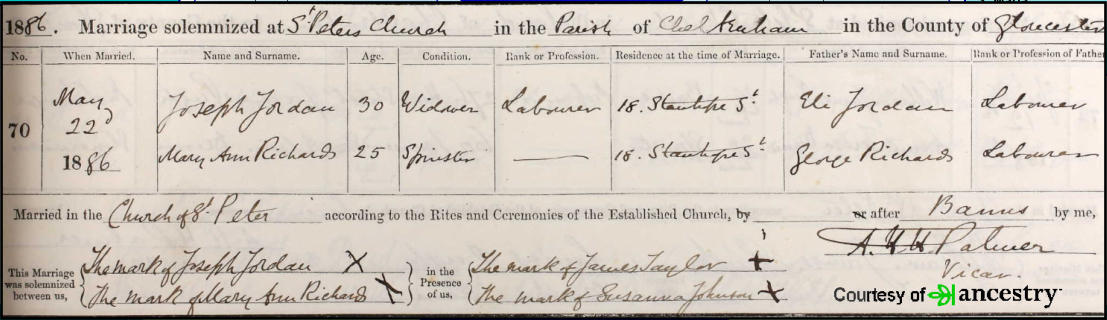 1886. Marriage solemnized at St Peters Church in the Parish of Cheltenham in the County of Gloucester
No. When Married. Name and Surname. Age. Condition. Rank or Profession. Residence at the time of Marriage. Father's Name and Surname. Rank or Profession of Father
70 May 22 1886
Joseph Jordan 30 Widower Labourer 18. Stanhope St. Eli Jordan Labourer
Mary Ann Richards 25 Spinster — 18. Stanhope St. George Richards Labourer
Married in the Church of St. Peter according to the Rites and Ceremonies of the Established Church, by or after Banns by me,
A. H H Palmer
Vicar.
This Marriage was solemnized between us, The mark of Joseph Jordan X
The mark of Mary Ann Richards X
in the Presence of us, The mark of James Taylor +
The mark of Susanna Johnson X
Courtesy of ancestry